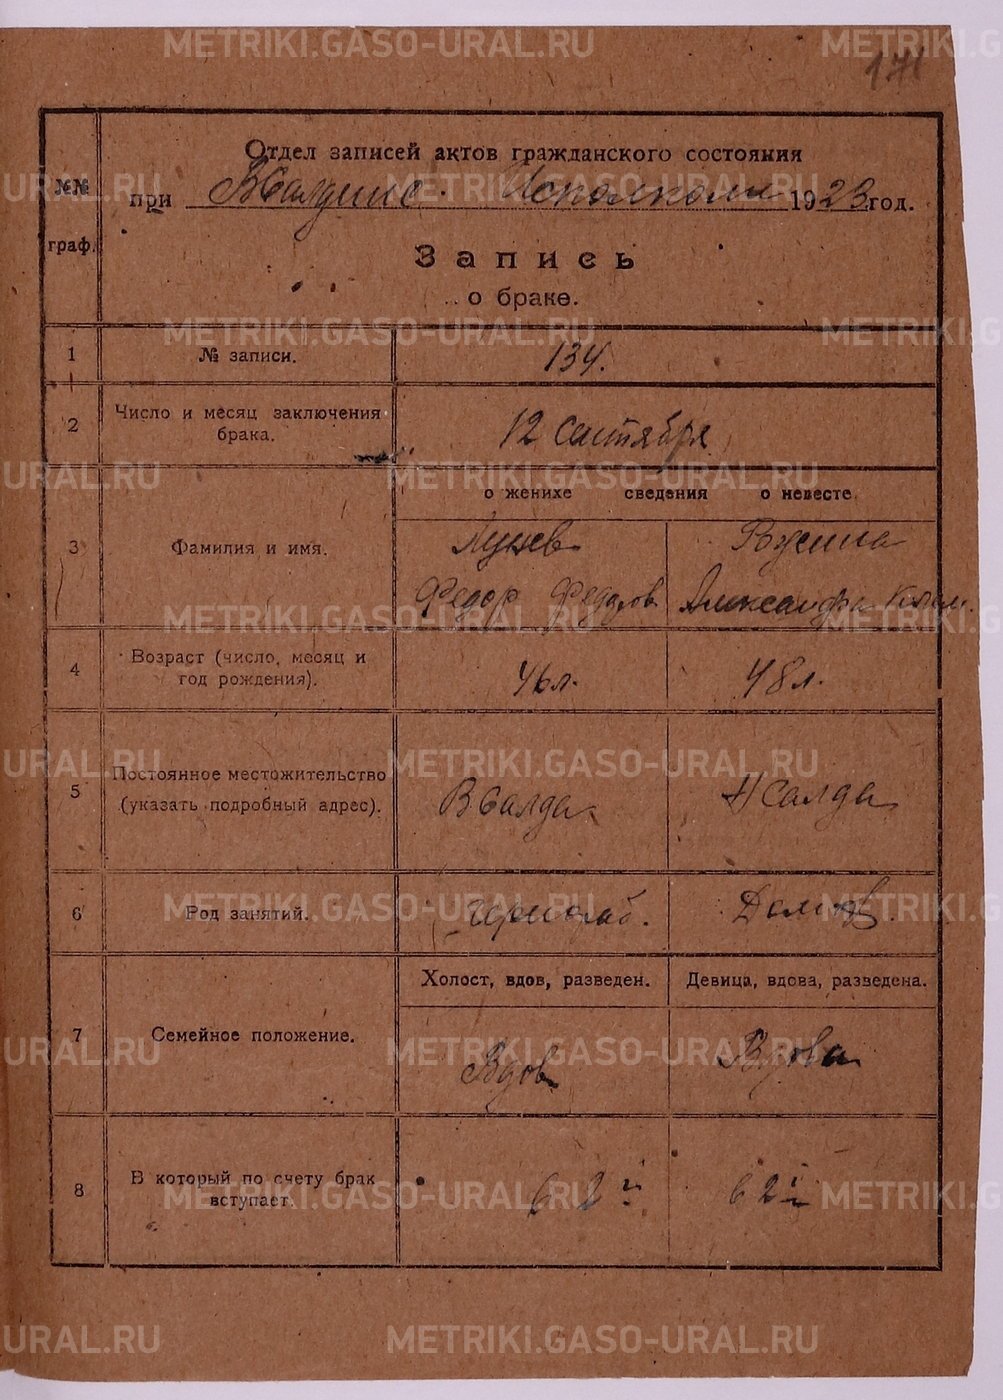 METRIKI.GASO-URAL.RU
171
Отдел записей актов гражданского состояния
№№
при ВСалдинс. Исполкоме 1923 год.
граф.
Запись
о браке.
1 № записи. 134.
2 Число и месяц заключения брака. 12 Сентября
о женихе сведения о невесте
3 Фамилия и имя.
Федор Федоров Александра Клим.
4 Возраст (число, месяц и год рождения). 46л. 48л.
5 Постоянное местожительство
(указать подробный адрес). ВСалда НСалда
6 Род занятий. Чернораб. Домов.
Холост, вдов, разведен. Девица, вдова, разведена.
7 Семейное положение. Вдов Вдова
8 В который по счету брак вступает. в 2й в 2й